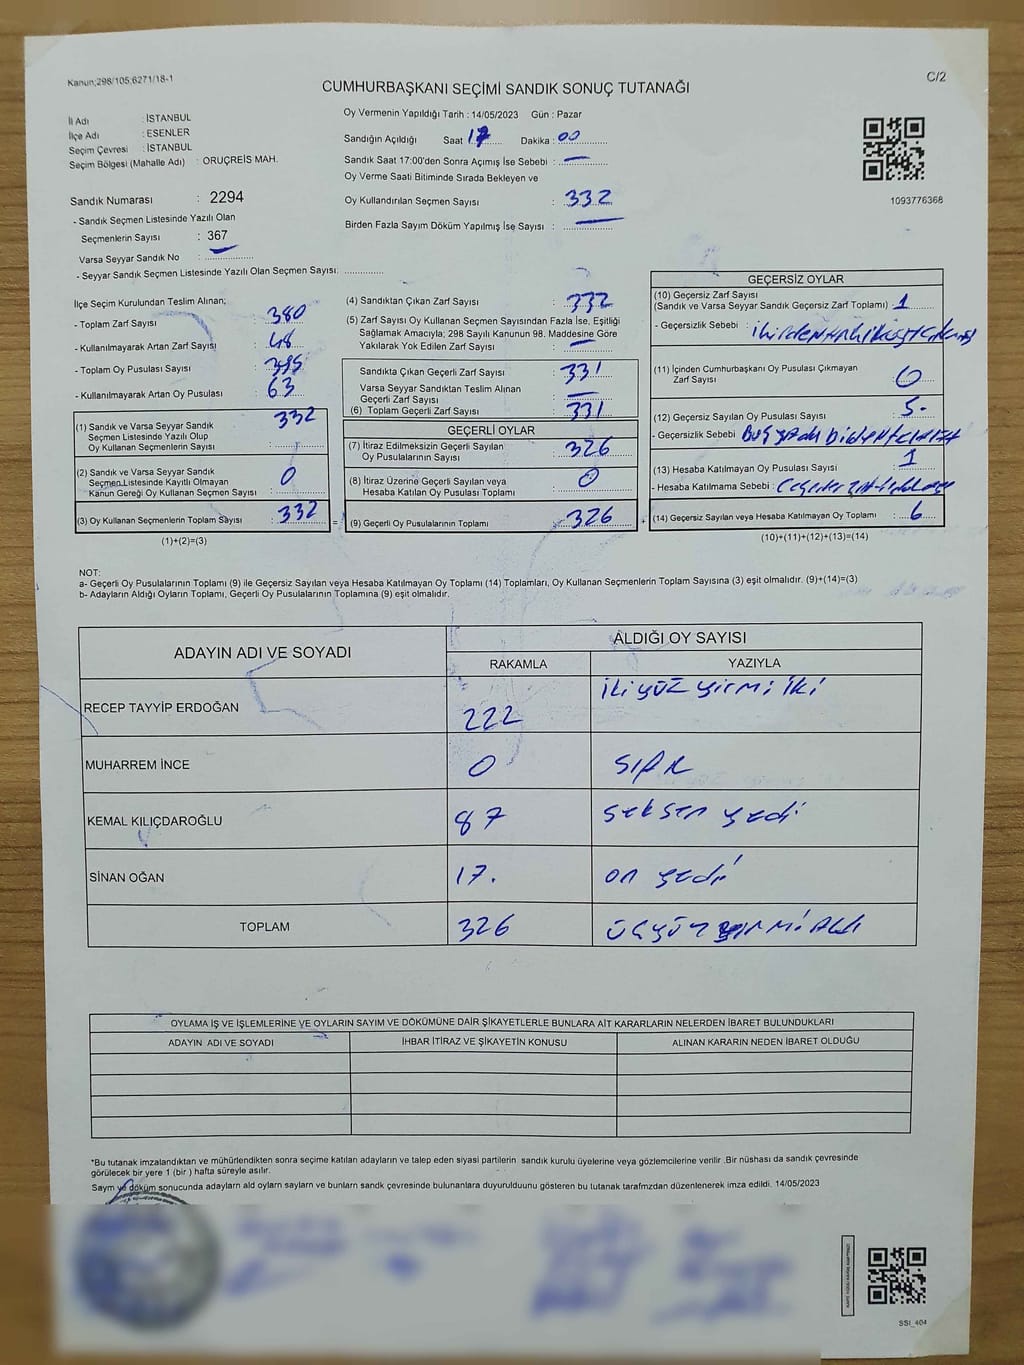 Kanun;298/105;6271/18-1
C/2
CUMHURBAŞKANI SEÇİMİ SANDIK SONUÇ TUTANAĞI
İl Adı : İSTANBUL
İlçe Adı : ESENLER
Seçim Çevresi : İSTANBUL
Seçim Bölgesi (Mahalle Adı) : ORUÇREİS MAH.
Sandık Numarası : 2294
- Sandık Seçmen Listesinde Yazılı Olan
Seçmenlerin Sayısı : 367
Varsa Seyyar Sandık No :
- Seyyar Sandık Seçmen Listesinde Yazılı Olan Seçmen Sayısı:
Oy Vermenin Yapıldığı Tarih : 14/05/2023 Gün : Pazar
Sandığın Açıldığı Saat 17 Dakika : 00
Sandık Saat 17:00'den Sonra Açımış İse Sebebi : —
Oy Verme Saati Bitiminde Sırada Bekleyen ve
Oy Kullandırılan Seçmen Sayısı : 332
Birden Fazla Sayım Döküm Yapılmış İse Sayısı : —
1093776368
İlçe Seçim Kurulundan Teslim Alınan;
- Toplam Zarf Sayısı : 380
- Kullanılmayarak Artan Zarf Sayısı : 48
- Toplam Oy Pusulası Sayısı : 395
- Kullanılmayarak Artan Oy Pusulası : 63
(1) Sandık ve Varsa Seyyar Sandık 332
Seçmen Listesinde Yazılı Olup
Oy Kullanan Seçmenlerin Sayısı :
(2) Sandık ve Varsa Seyyar Sandık
Seçmen Listesinde Kayıtlı Olmayan 0
Kanun Gereği Oy Kullanan Seçmen Sayısı :
(3) Oy Kullanan Seçmenlerin Toplam Sayısı : 332
(1)+(2)=(3)
=
(4) Sandıktan Çıkan Zarf Sayısı : 332
(5) Zarf Sayısı Oy Kullanan Seçmen Sayısından Fazla İse, Eşitliği
Sağlamak Amacıyla; 298 Sayılı Kanunun 98. Maddesine Göre
Yakılarak Yok Edilen Zarf Sayısı : —
Sandıkta Çıkan Geçerli Zarf Sayısı : 331
Varsa Seyyar Sandıktan Teslim Alınan
Geçerli Zarf Sayısı : —
(6) Toplam Geçerli Zarf Sayısı : 331
GEÇERLİ OYLAR
(7) İtiraz Edilmeksizin Geçerli Sayılan
Oy Pusulalarının Sayısı : 326
(8) İtiraz Üzerine Geçerli Sayılan veya
Hesaba Katılan Oy Pusulası Toplamı : 0
(9) Geçerli Oy Pusulalarının Toplamı : 326
+
GEÇERSİZ OYLAR
(10) Geçersiz Zarf Sayısı
(Sandık ve Varsa Seyyar Sandık Geçersiz Zarf Toplamı) : 1
- Geçersizlik Sebebi :
(11) İçinden Cumhurbaşkanı Oy Pusulası Çıkmayan
Zarf Sayısı : 0
(12) Geçersiz Sayılan Oy Pusulası Sayısı : 5.
- Geçersizlik Sebebi
(13) Hesaba Katılmayan Oy Pusulası Sayısı : 1
- Hesaba Katılmama Sebebi :
(14) Geçersiz Sayılan veya Hesaba Katılmayan Oy Toplamı : 6
(10)+(11)+(12)+(13)=(14)
NOT:
a- Geçerli Oy Pusulalarının Toplamı (9) ile Geçersiz Sayılan veya Hesaba Katılmayan Oy Toplamı (14) Toplamları, Oy Kullanan Seçmenlerin Toplam Sayısına (3) eşit olmalıdır. (9)+(14)=(3)
b- Adayların Aldığı Oyların Toplamı, Geçerli Oy Pusulalarının Toplamına (9) eşit olmalıdır.
ADAYIN ADI VE SOYADI
ALDIĞI OY SAYISI
RAKAMLA YAZIYLA
RECEP TAYYİP ERDOĞAN 222 iki yüz yirmi iki
MUHARREM İNCE 0 sıfır
KEMAL KILIÇDAROĞLU 87 seksen yedi
SİNAN OĞAN 17. on yedi
TOPLAM 326 üçyüz yirmi altı
OYLAMA İŞ VE İŞLEMLERİNE VE OYLARIN SAYIM VE DÖKÜMÜNE DAİR ŞİKAYETLERLE BUNLARA AİT KARARLARIN NELERDEN İBARET BULUNDUKLARI
ADAYIN ADI VE SOYADI İHBAR İTİRAZ VE ŞİKAYETİN KONUSU ALINAN KARARIN NEDEN İBARET OLDUĞU
*Bu tutanak imzalandıktan ve mühürlendikten sonra seçime katılan adayların ve talep eden siyasi partilerin sandık kurulu üyelerine veya gözlemcilerine verilir .Bir nüshası da sandık çevresinde
görülecek bir yere 1 (bir ) hafta süreyle asılır.
Saym ve döküm sonucunda adayların ald oyların saylarn ve bunlarn sandk çevresinde bulunanlara duyurulduunu gösteren bu tutanak tarafmzdan düzenlenerek imza edildi. 14/05/2023
SSI_404